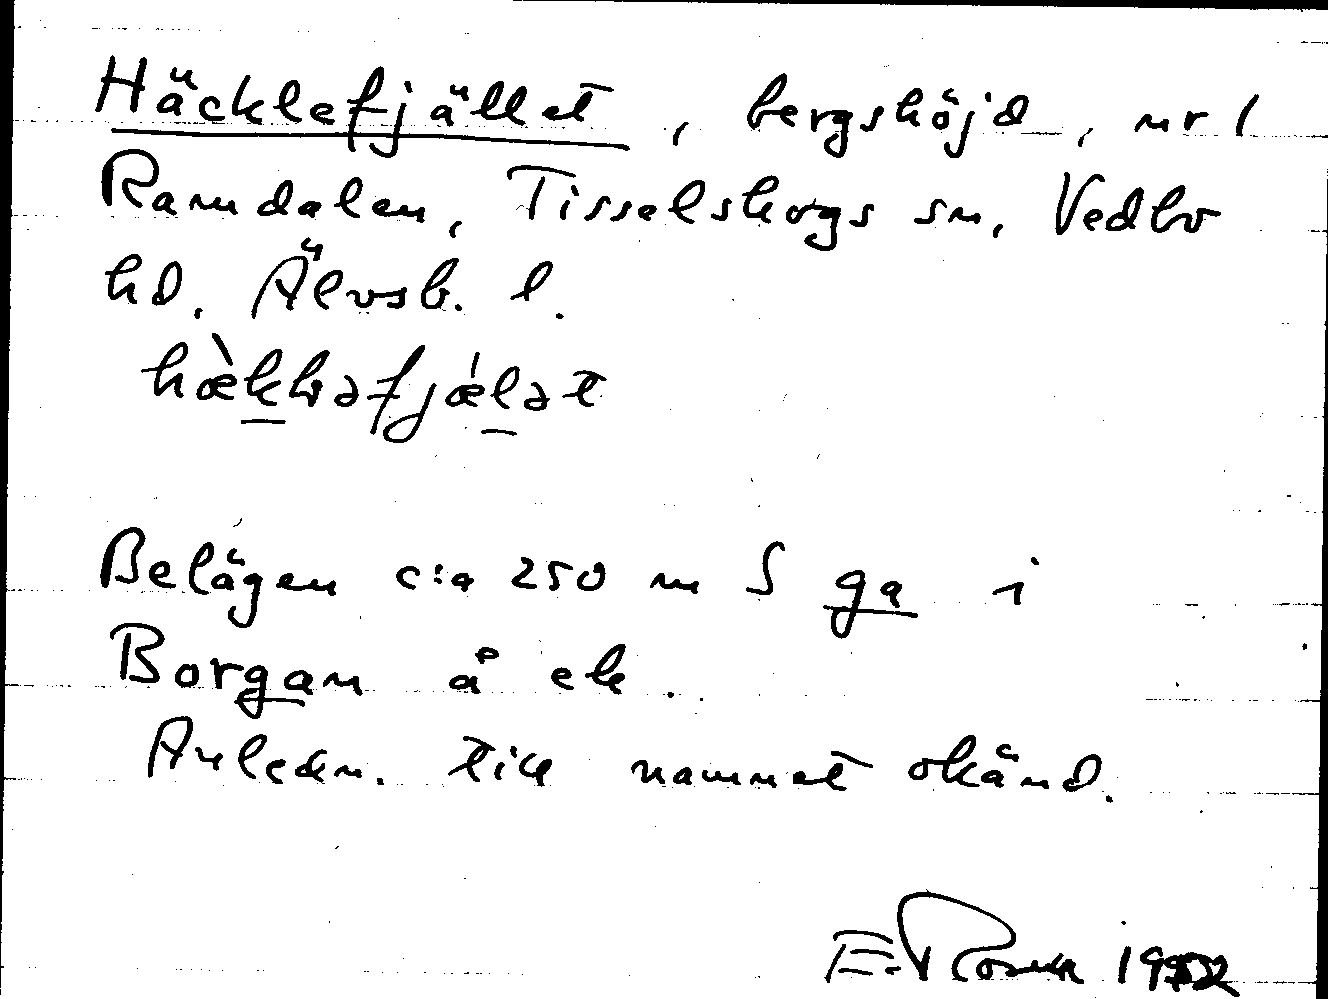 Häcklefjället, bergshöjd, nr 1
Ramdalen, Tisselskogs sn, Vedbo
hd. Älvsb. l.
hæ̀kləfjǽlət
Belägen c:a 250 m S ga i
Borgan å ek.
Anledn. till namnet okänd.
E.